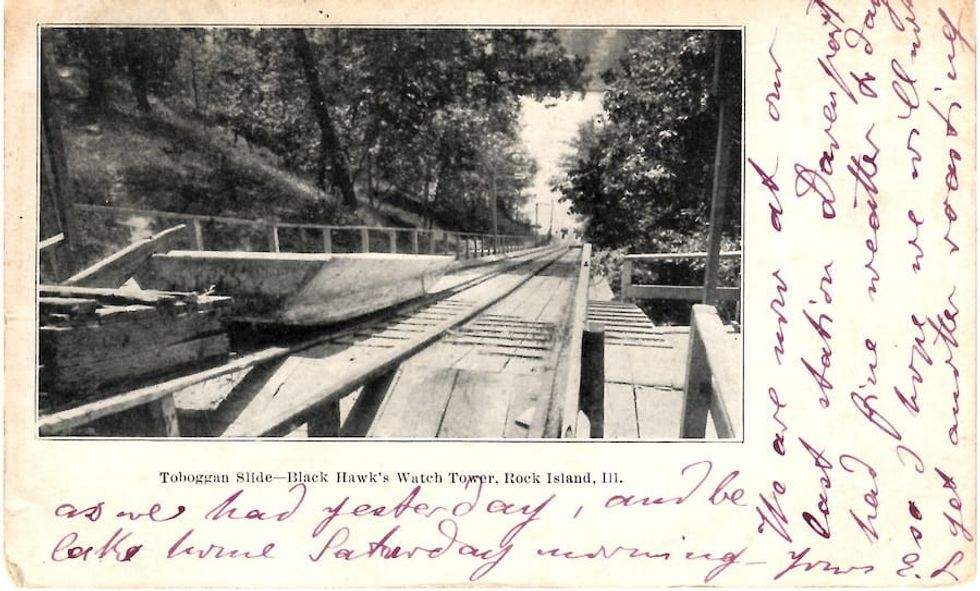 Toboggan Slide—Black Hawk's Watch Tower, Rock Island, Ill.
We are now at our
last station Davenport
had fine weather to day
so I hope we will not
get another roasting
as we had yesterday, and be
home Saturday morning - yours